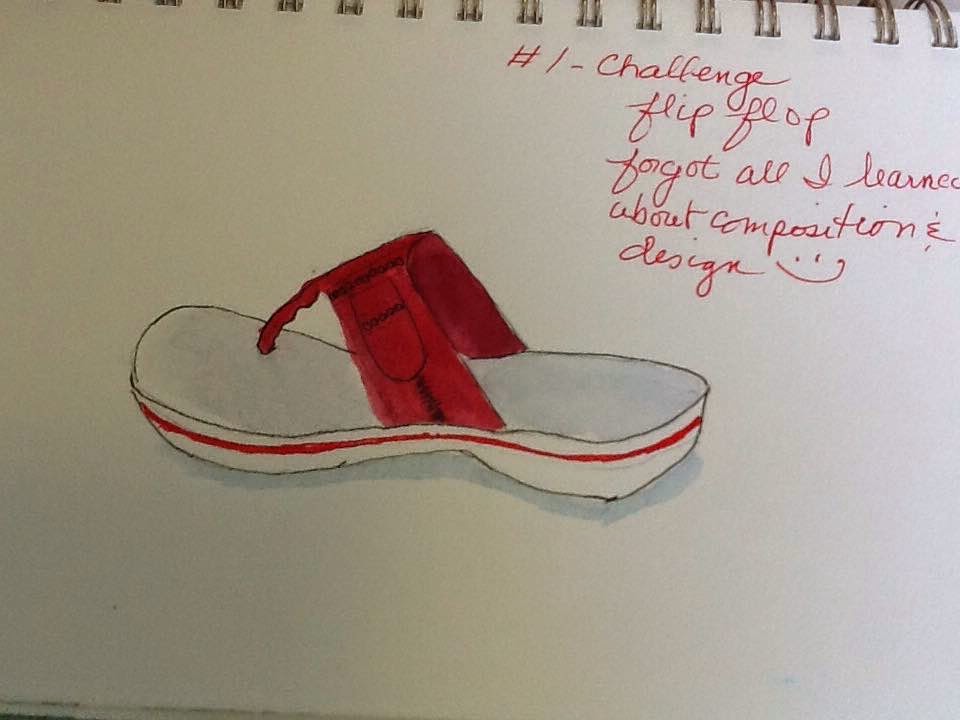 #1 - Challenge
flip flop
forgot all I learned
about composition &
design